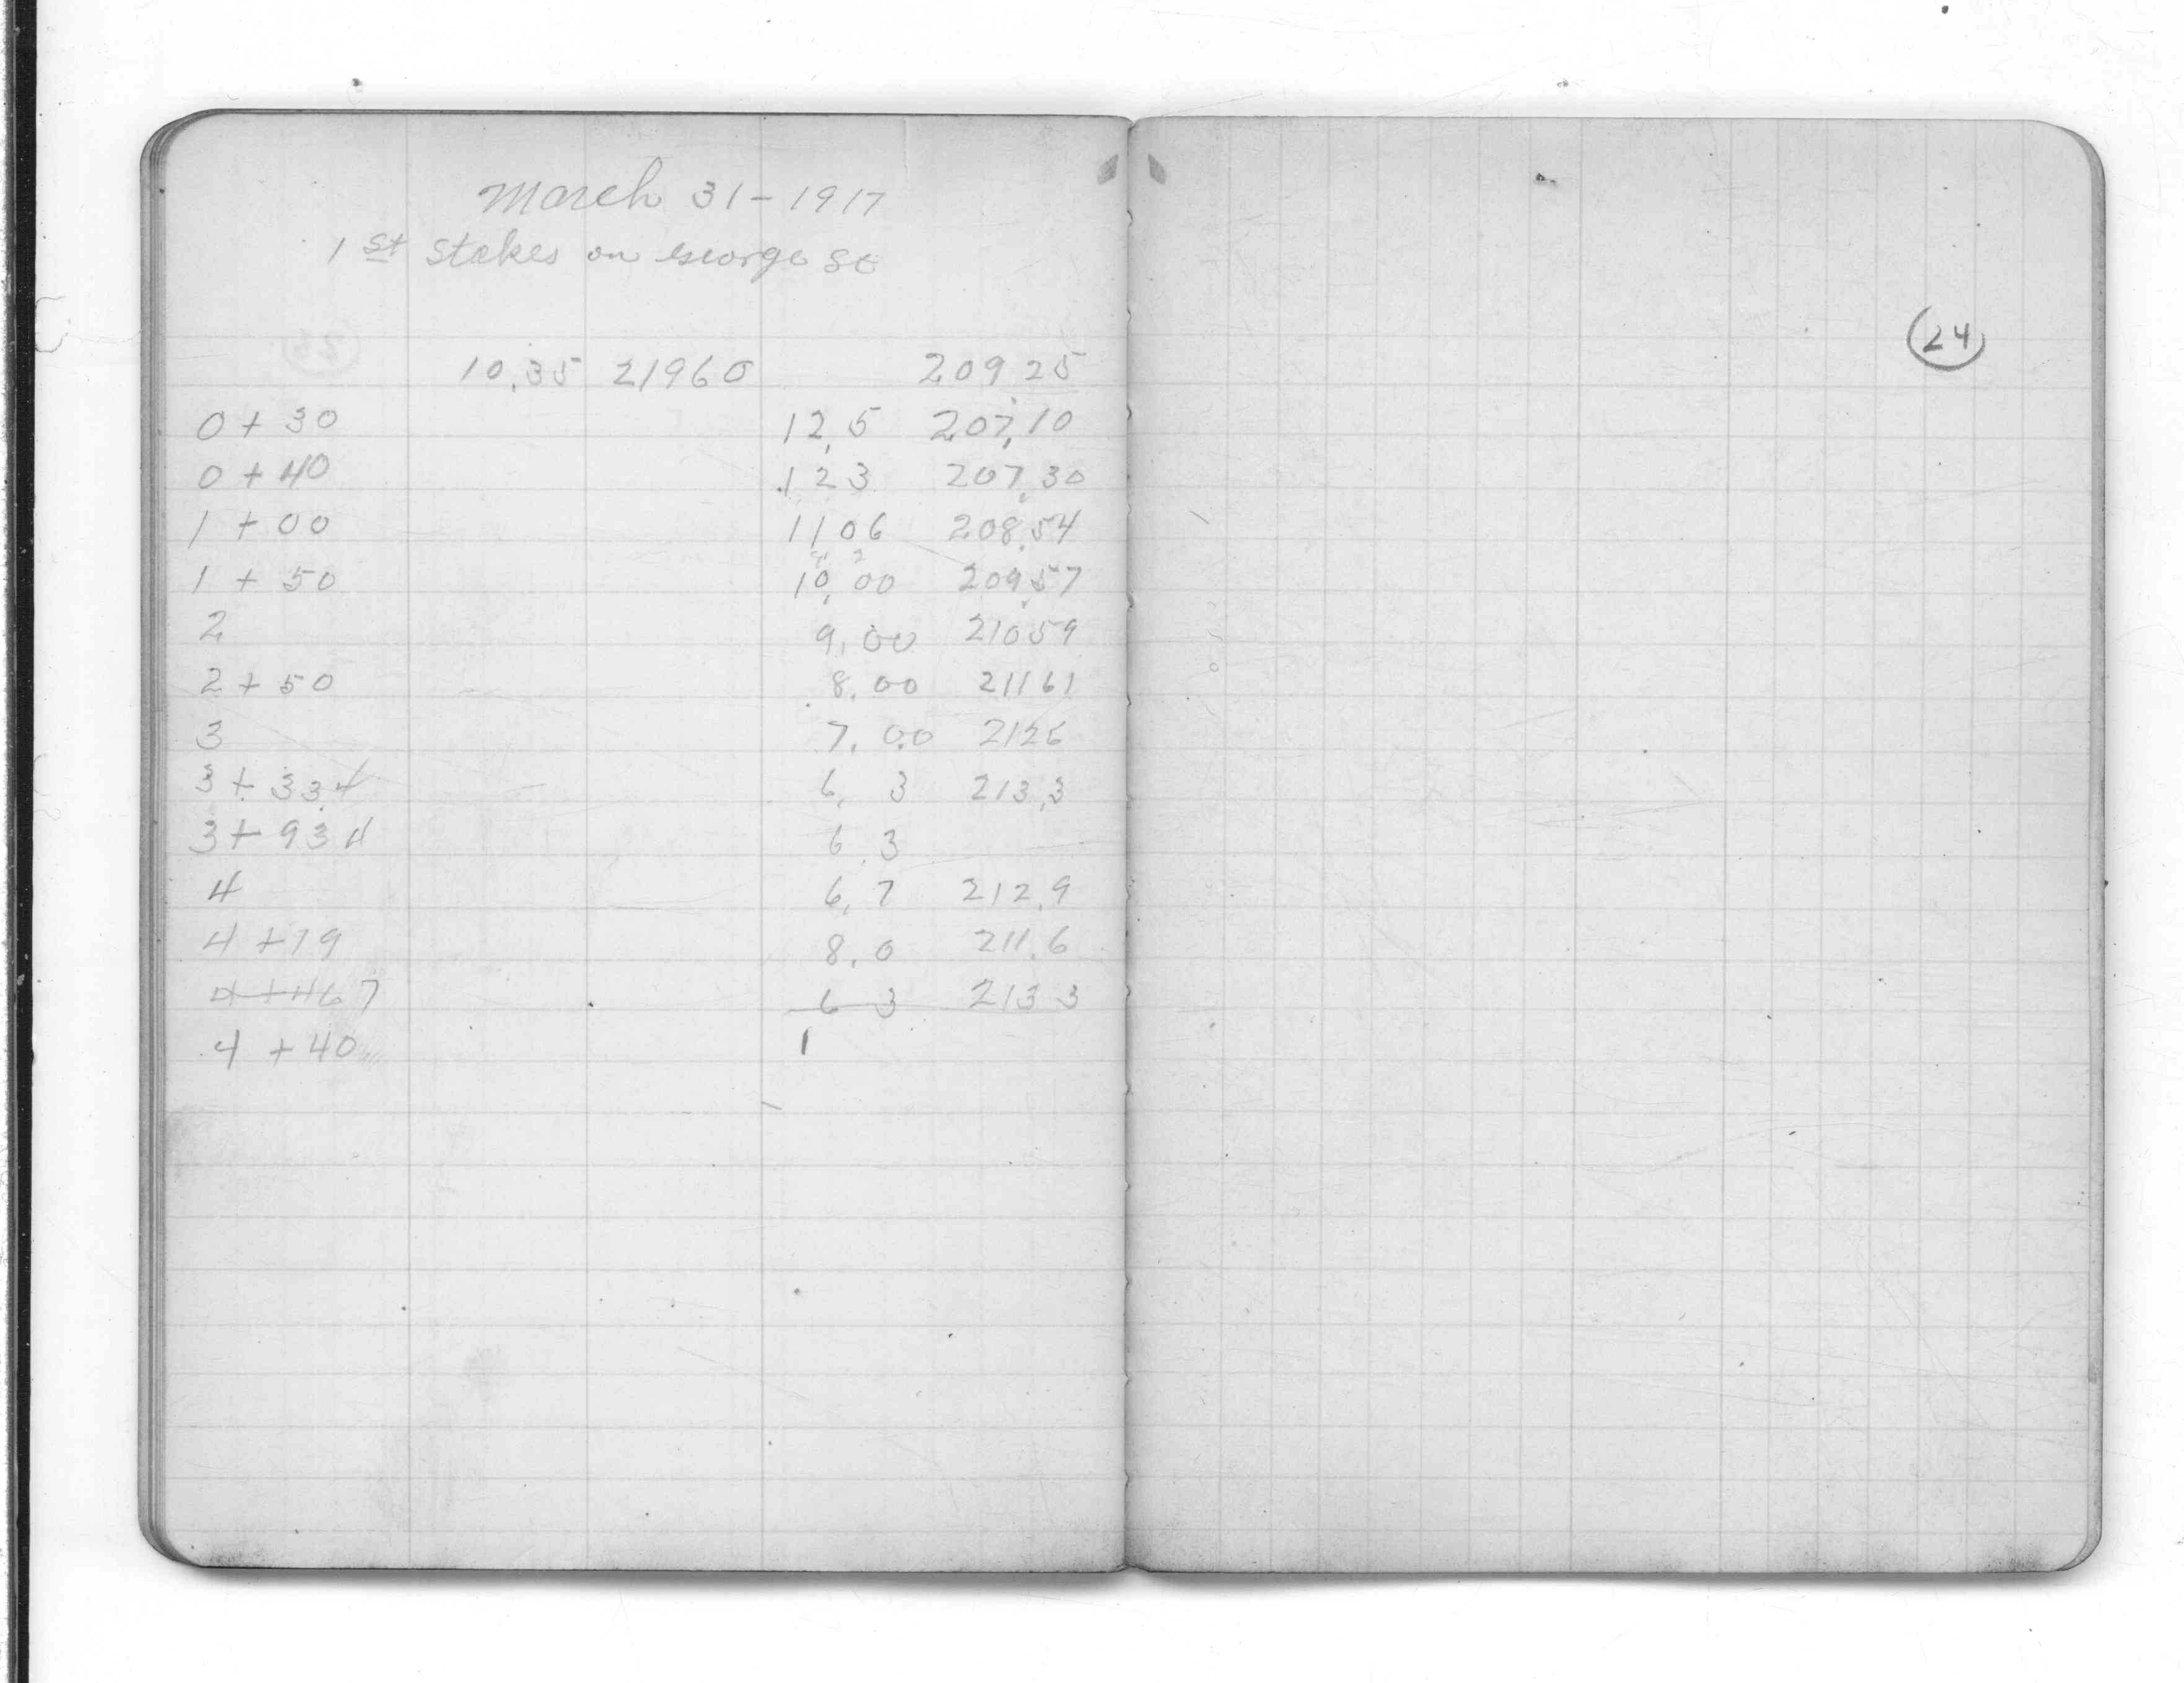 March 31-1917
1st Stakes on George St
10.35 21960 209 25
0+30 12.5 207.10
0+40 12 3 207.30
1+00 11 06 208.54
1+50 10.00 209.57
2 9.00 210 59
2+50 8.00 211 61
3 7.00 212 6
3+33.4 6.3 213.3
3+93 4 6.3
4 6.7 212.9
4+19 8.0 211.6
4+46 7 6 3 213 3
4+40 1
24